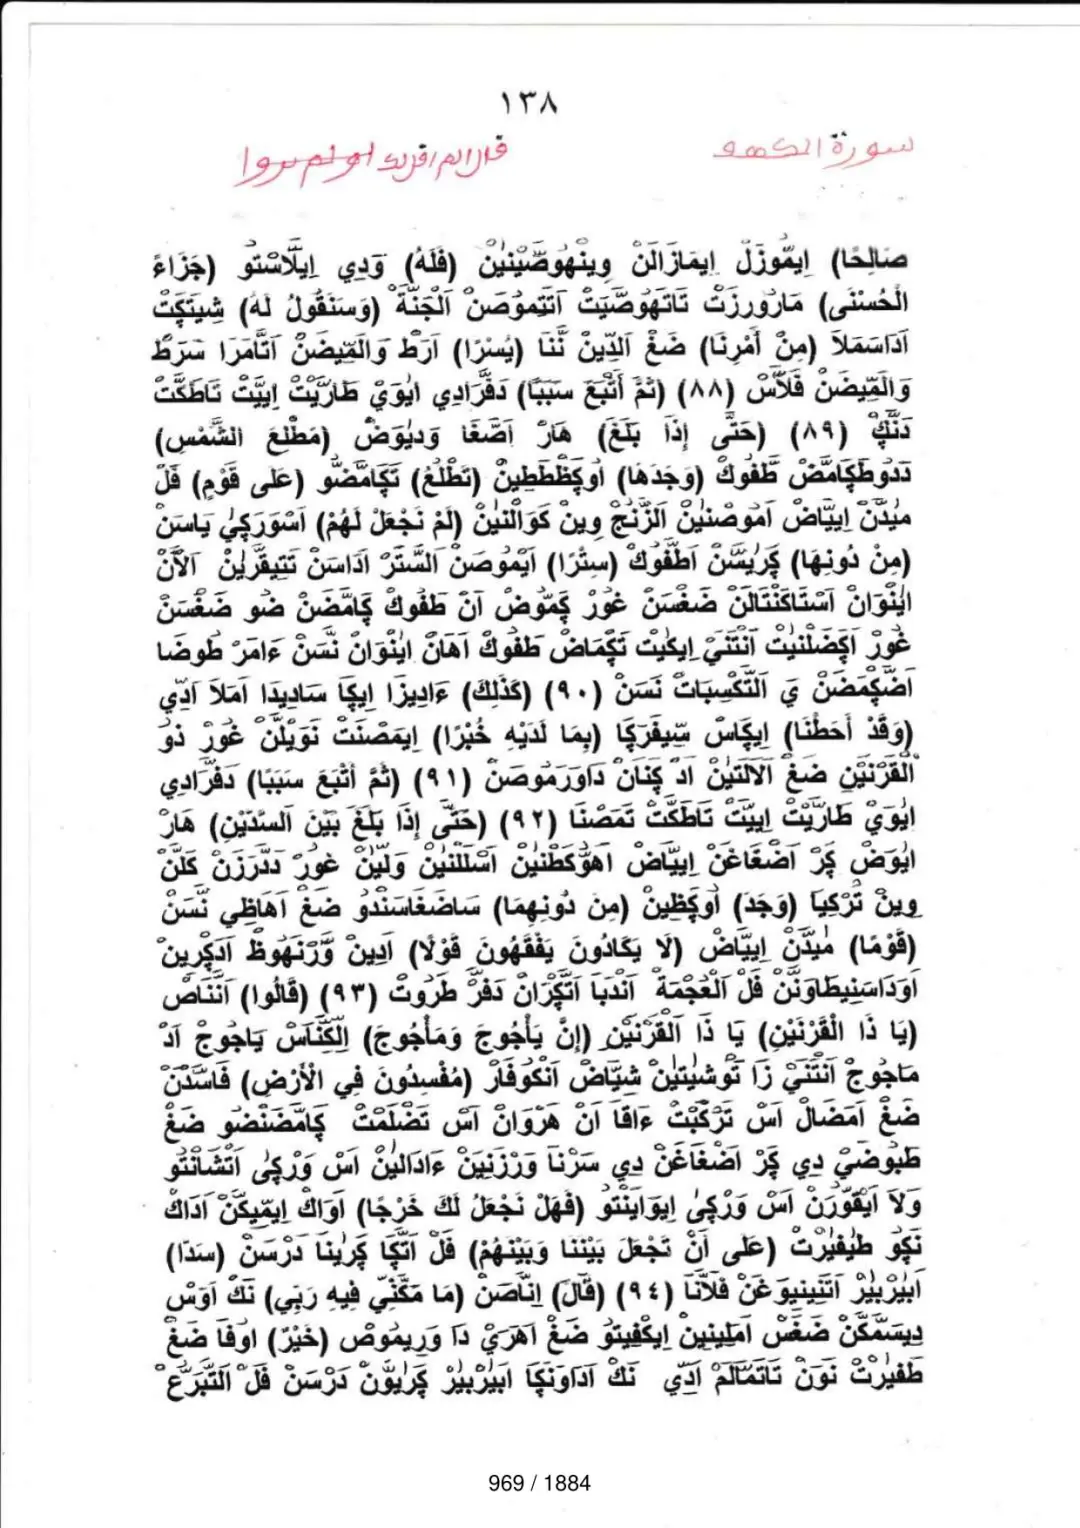 ١٣٨
سورة الكهف
قال الم اقل لك اولم يروا
صَالِحًا) اِيمُّوزَلْ اِيمَازَالَنْ وِينْهُوضَّيْنِيْنْ (فَلَهُ) وَدِي اِيلَّاسْتُو (جَزَاءً
الْحُسْنَى) مَارُورزَتْ تَاتَهُوصَّيَتْ اَتَتِمُوصَنْ اَلْجَنَّةْ (وَسَنَقُولُ لَهُ) شِيتَكَّتْ
اَدَاسَمَلَا (مِنْ أَمْرِنَا) ضَغْ اَلدِّينْ نَّنَا (يُسْرًا) اَرَطْ وَالَمِّيضَنْ اَتَّامَرَا شَرَطْ
وَالَمِّيضَنْ فَلَّاسْ (٨٨) (ثُمَّ أَتْبَعَ سَبَبًا) دَفَّرَادِي اِيُوَيْ طَارَيْتْ اِييَّتْ تَاطَكَّتْ
دَنَّكْ (٨٩) (حَتَّى إِذَا بَلَغَ) هَارْ اَضَّغَا وَدِيُوَضْ (مَطْلَعَ الشَّمْسِ)
دَدُوطَكَامَّضْ طَّفُوكْ (وَجَدَهَا) اُوكَظْطَطِينْ (تَطْلُعُ) تَكَامَّضُو (عَلَى قَوْمٍ) فَلْ
مْيدَّنْ اِييَّاضْ اَمُوصْنيْنْ اَلزَّنْجْ وِينْ كَوَالْنِيْنْ (لَمْ نَجْعَلْ لَهُمْ) اَسْوَرَكِيْ يَاسَنْ
(مِنْ دُونِهَا) كَرَيْسَنْ اَطَّفُوكْ (سِتْرًا) اَيْمُوصَنْ اَلسَّتَرْ اَدَاسَنْ تَتِيقَّرَيْنْ اَلْاَنْ
اِيْنْوَانْ اَسْتَاكَنْتَالَنْ ضَغْسَنْ غُورْ كَمُّوضْ اَنْ طَفُوكْ كَامَّضَنْ ضُو ضَغْسَنْ
غُورْ اَكَضَلْنيْتْ اَنْتَنَيْ اِيكَيْتْ تَكْمَاضْ طَفُوكْ اَهَانْ اِيْنْوَانْ نَّسَنْ ءَامَرْ طُوضَا
اَضْكَمَّضَنْ يَ اَلتَّكْسِبَاتْ نَسَنْ (٩٠) (كَذَلِكَ) ءَادِيزَا اِيكَا سَادِيدَا اَمَلَا اَدِّي
(وَقَدْ أَحَطْنَا) اِيكَاسْ سِّيفَرَكَا (بِمَا لَدَيْهِ خُبْرًا) اِيمَصَنْتْ نَوَيْلَنْ غُورْ ذُو
اَلْقَرْنَيْنِ ضَغْ اَلَالَتَيْنْ اَدْ كِنَانْ دَاوَرَمُوصَنْ (٩١) (ثُمَّ أَتْبَعَ سَبَبًا) دَفَّرَادِي
اِيُوَيْ طَارَيْتْ اِييَّتْ تَاطَكَّتْ تَمَصْنَا (٩٢) (حَتَّى إِذَا بَلَغَ بَيْنَ اَلسَّدَّيْنِ) هَارْ
اِيُوَضْ كَرْ اَضْغَاغَنْ اِييَّاضْ اَهَوَّكَطْنيْنْ اَسْلَلْنيْنْ وَلَيْنْ غُورْ دَدَرَزَنْ كَلَّنْ
وِينْ تُرْكِيَا (وَجَدَ) اُوكَظِينْ (مِن دُونِهِمَا) سَاضَغَاسَنْدُو ضَغْ اَهَاظِي نَّسَنْ
(قَوْمًا) مْيدَّنْ اِييَّاضْ (لَا يَكَادُونَ يَفْقَهُونَ قَوْلًا) اَدِينْ وَّرْنَهُوظْ اَدَكْرِينْ
اَوَدَاسَنِيطَاوَنَّنْ فَلْ اَلْعُجْمَةْ اَنْدَبَا اَتَكْرَانْ دَفَّرْ طَرُوتْ (٩٣) (قَالُوا) اَنَّنَاصْ
(يَا ذَا الْقَرْنَيْنِ) يَا ذَا اَلْقَرْنَيْنِ (إِنَّ يَأْجُوجَ وَمَأْجُوجَ) اِلْكَنَّاسْ يَاجُوجْ اَدْ
مَاجُوجْ اَنْتَنَيْ زَا تَوْشيْتيْنْ شِيَّاضْ اَنْكُوفَارْ (مُفْسِدُونَ فِي الْأَرْضِ) فَاسَدَّنْ
ضَغْ اَمَضَالْ اَسْ تَرْكَبْتْ ءَاقَا اَنْ هَرْوَانْ اَسْ تَضْلَمْتْ كَامَّضَنْضُو ضَغْ
طَبُوضَيْ دِي كَرْ اَضْغَاغَنْ دِي سَرْنَا وَرْزَنِيَنْ ءَادَالَيْنْ اَسْ وَرْكَيْ اَتْشَانْتُو
وَلَا اَيْقُورَنْ اَسْ وَرْكَيْ اِيوَايَنْتُو (فَهَلْ نَجْعَلُ لَكَ خَرْجًا) اَوَاكْ اِيمِّيكَنْ اَدَاكْ
نَكُو طِيفْيرْتْ (عَلَى أَنْ تَجْعَلَ بَيْنَنَا وَبَيْنَهُمْ) فَلْ اَتَّكَا كَرَيْنَا دَرْسَنْ (سَدًّا)
اَبيْرْبيْرْ اَتَّنِينِيوَغَنْ فَلَّانَا (٩٤) (قَالَ) اِنَّاصَنْ (مَا مَكَّنِّي فِيهِ رَبِّي) نَكْ اَوَسْ
دِيسَمَّكَنْ ضَغْسْ اَمَلِينِينْ اِيكْفِيتُو ضَغْ اَهَرَيْ دَا وَرِيمُوصْ (خَيْرٌ) اُوفَا ضَغْ
طَفيْرْتْ نَوَنْ تَاتَمَّالَمْ اَدِّي نَكْ اَدَاوَنَكَا اَبيْرْبيْرْ كَرَيْوَنْ دَرْسَنْ فَلْ اَلتَّبَرُّعْ
969 / 1884